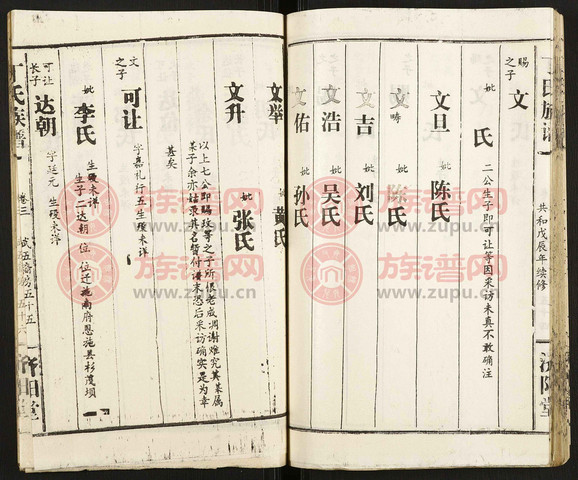 丁氏族谱
共和戊辰年续修
济阳堂
赐之子
文
妣 氏 二公生子即可让等因采访未真不敢确注
文旦 妣 陈氏
文畴 妣 陈氏
文吉 妣 刘氏
文浩 妣 吴氏
文佑 妣 孙氏
文举 妣 黄氏
文升 妣 张氏
以上七公即赐玟等之子所恨老成凋谢难究其某属
某子余亦姑录其名暂付谱末恐后采访确实是为幸
甚矣
文之子
可让 字嘉礼行五生殁未详
妣 李氏 生殁未详
生子二达朝 位 位迁施南府恩施县杉茂坝
可让长子
达朝 字廷元 生殁未详
丁氏族谱
卷三
济阳堂
族谱网
www.zupu.cn
族谱网
www.zupu.cn